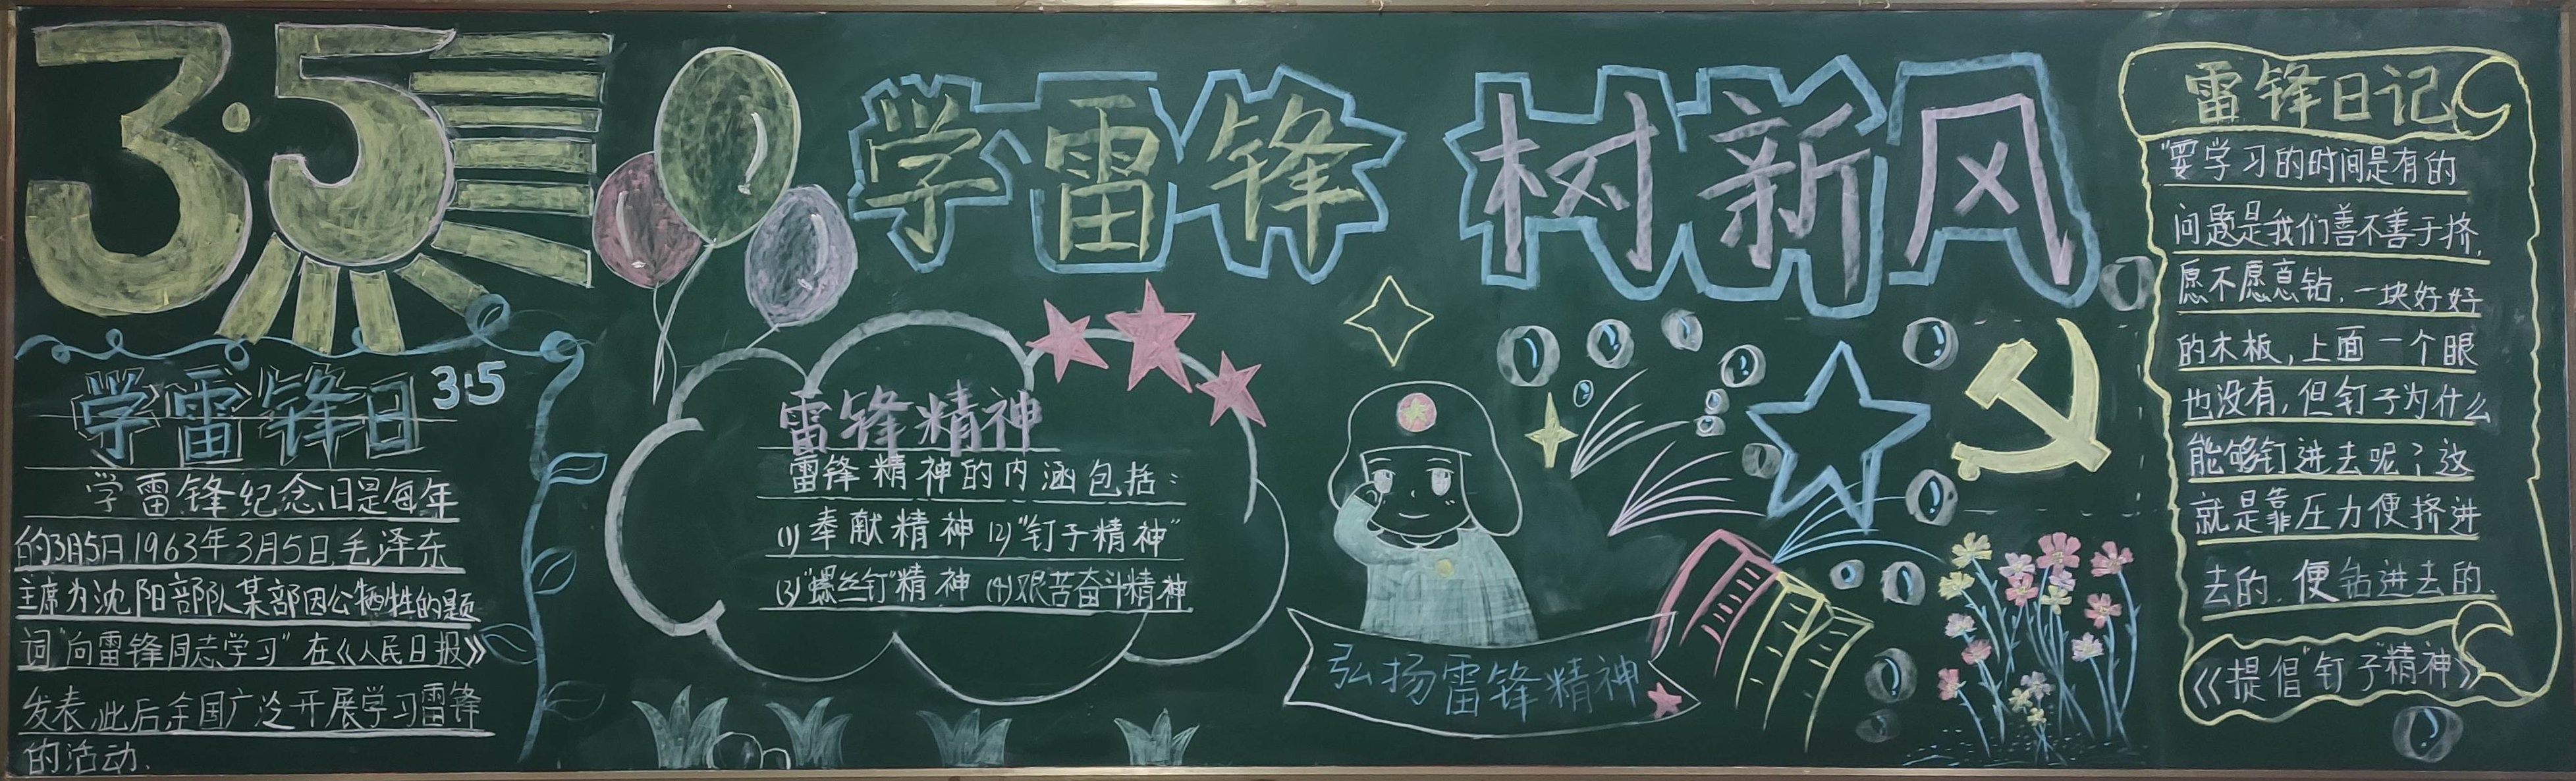 3·5
学雷锋 树新风
学雷锋日 3.5
学雷锋纪念日是每年
的3月5日.1963年3月5日,毛泽东
主席为沈阳部队某部因公牺牲的题
词"向雷锋同志学习"在《人民日报》
发表,此后全国广泛开展学习雷锋
的活动.
雷锋精神
雷锋精神的内涵包括:
(1)奉献精神 (2)"钉子精神"
(3)"螺丝钉"精神 (4)艰苦奋斗精神
弘扬雷锋精神
雷锋日记
"要学习的时间是有的
问题是我们善不善于挤,
愿不愿意钻,一块好好
的木板,上面一个眼
也没有,但钉子为什么
能够钉进去呢?这
就是靠压力便挤进
去的,便钻进去的.
《提倡"钉子"精神》